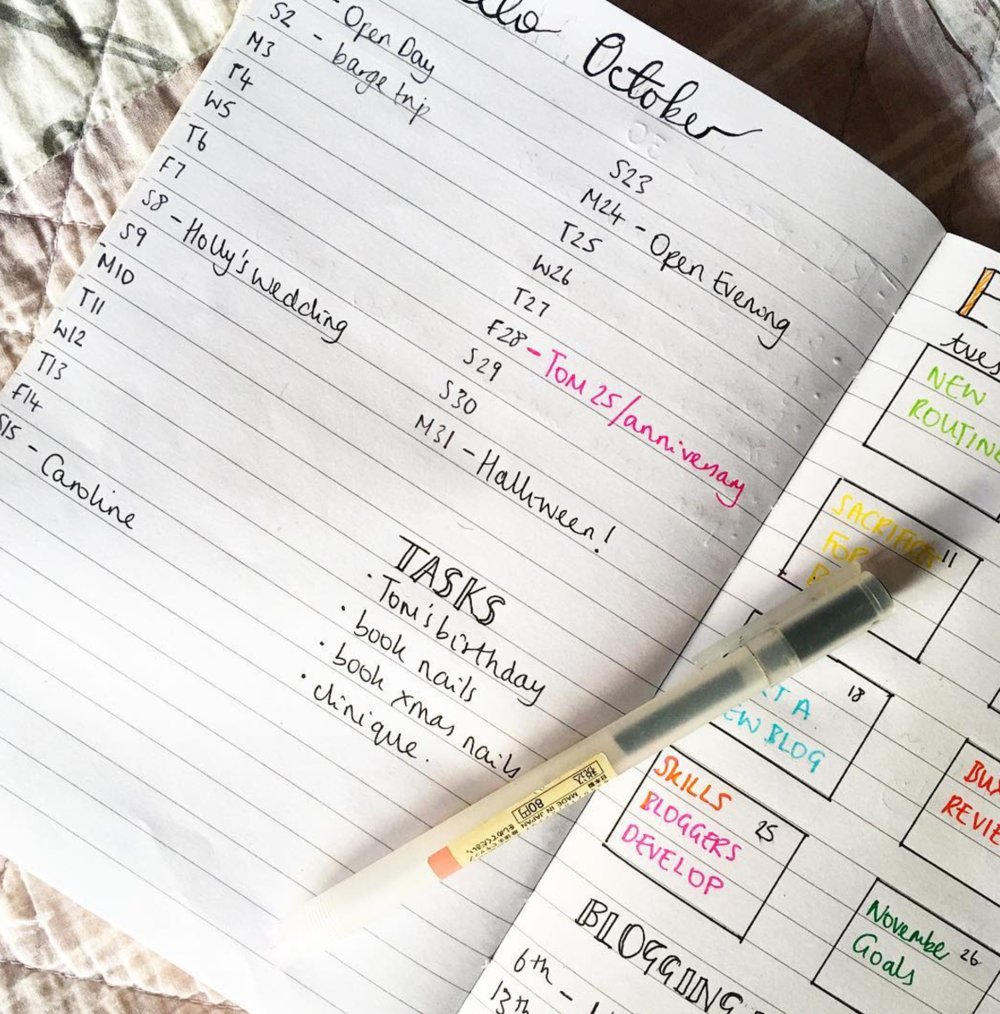 October
- Open Day
S2 - barge trip
M3
T4
W5
T6
F7
S8 - Holly's Wedding
S9
M10
T11
W12
T13
F14
S15 - Caroline
S23
M24 - Open Evening
T25
W26
T27
F28 - TOM 25/anniversary
S29
S30
M31 - Halloween!
TASKS
· Tom's birthday
· book nails
· book xmas nails
· clinique.
MADE IN JAPAN
80円
日本製
tues
NEW
ROUTINE
SACRIFICE 11
FOR
18
T A
EW BLOG
SKILLS 25
BLOGGERS
DEVELOP
REVIE
November 26
Goals
BLOGGING
6th -
13th